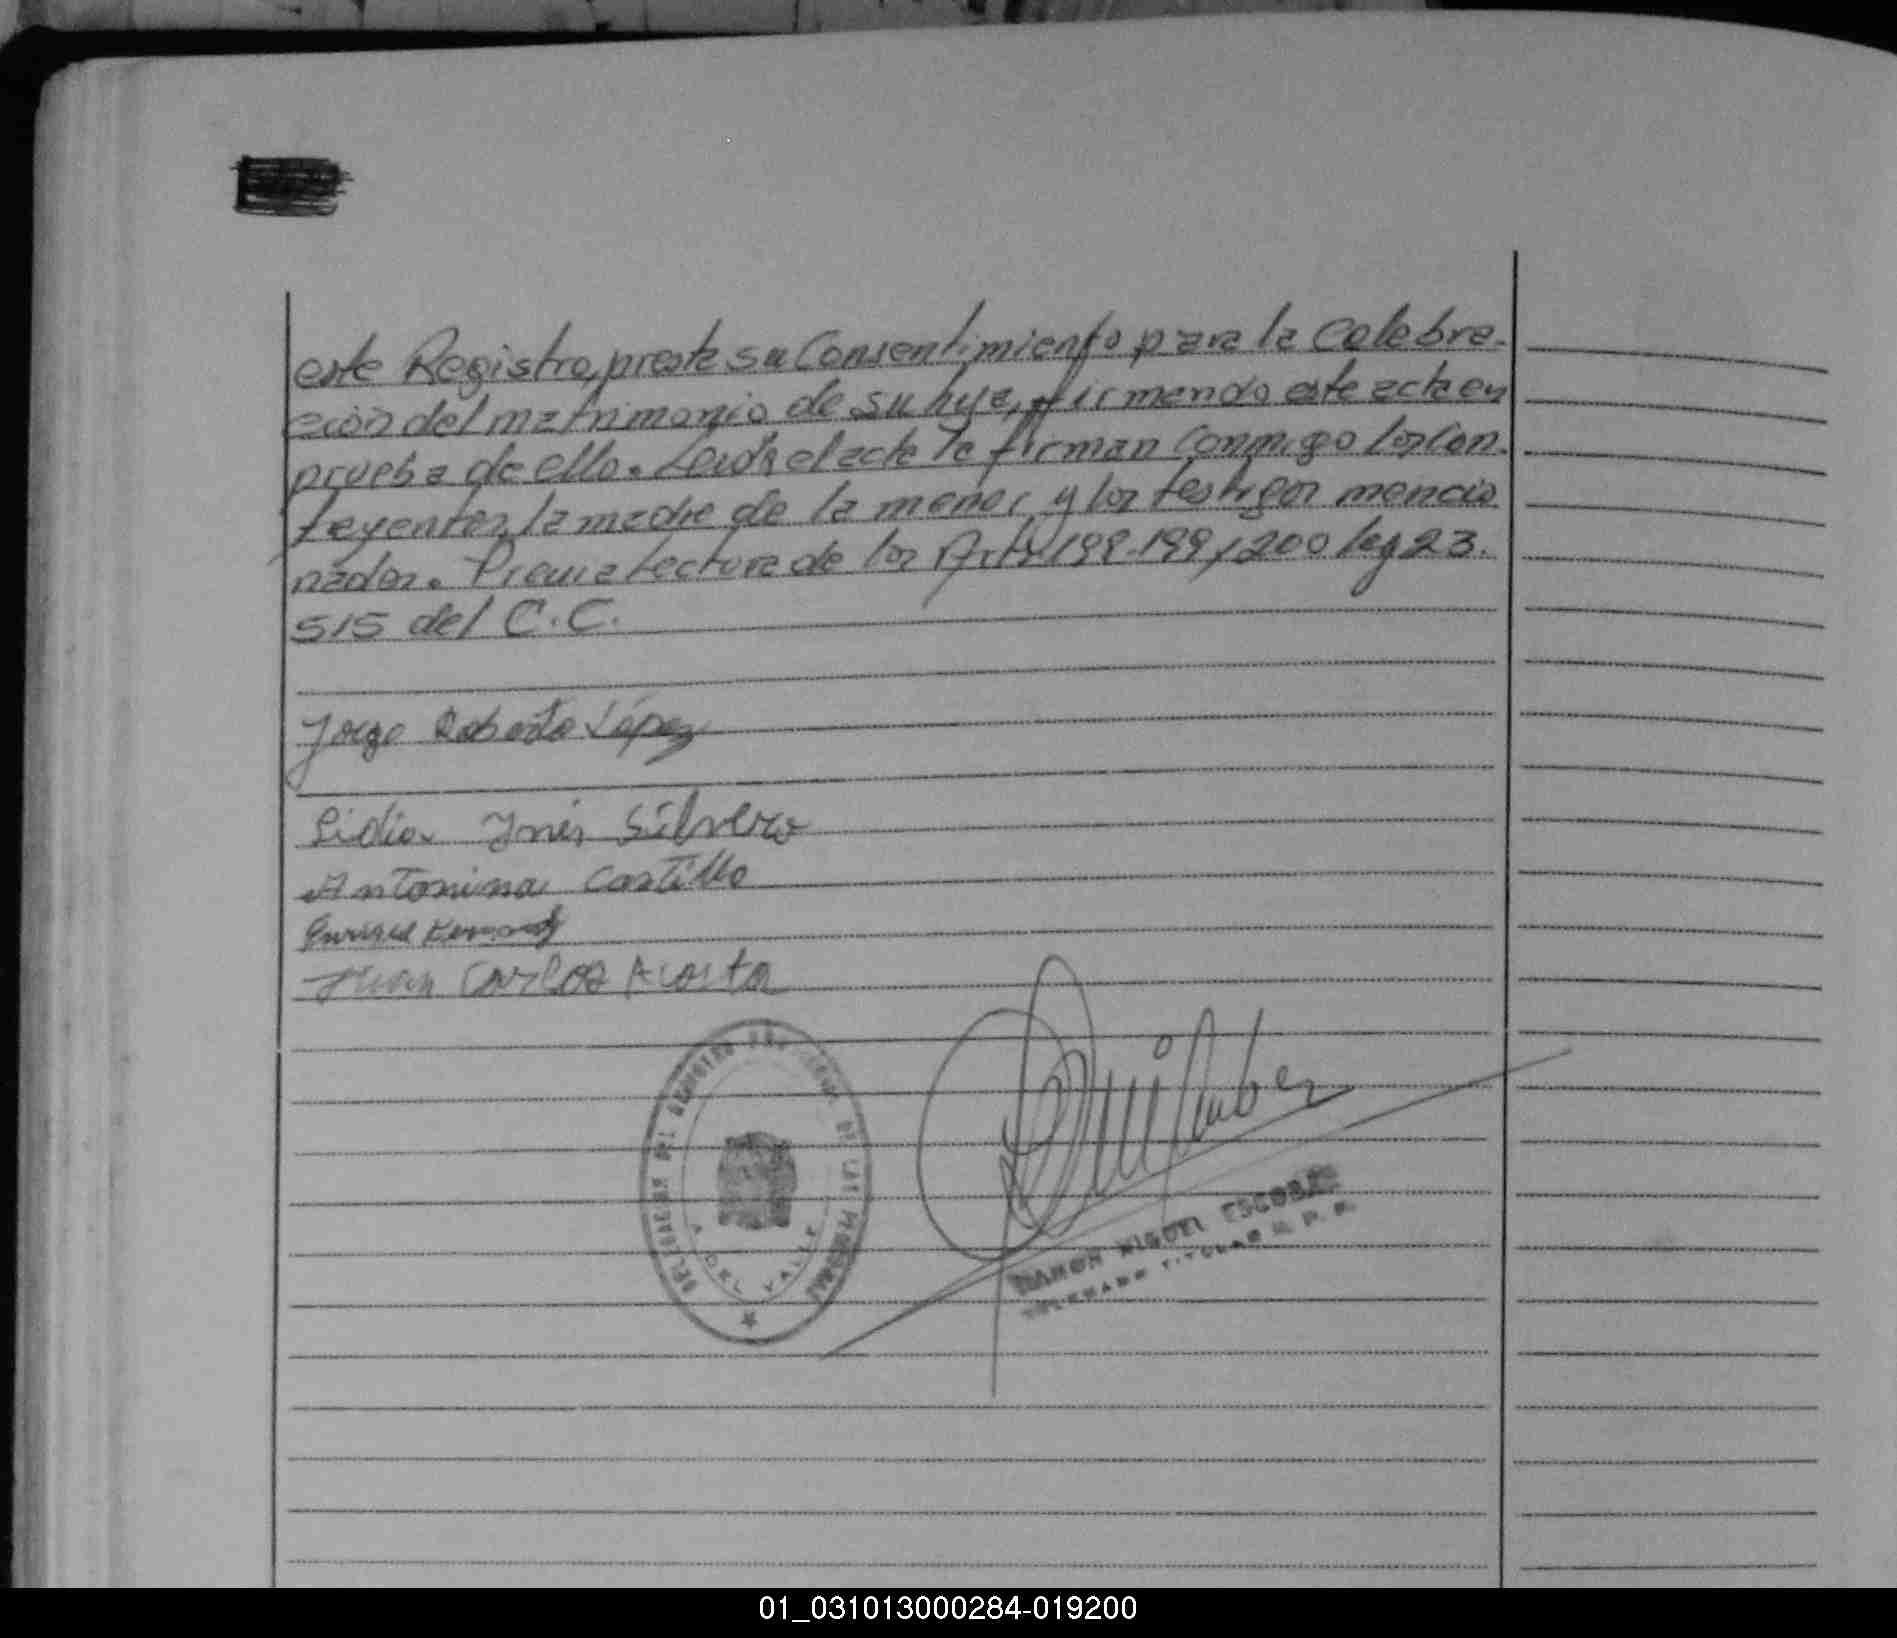 este Registro, presta su Consentimiento para la Celebra-
ción del matrimonio de su hija, firmando este acta en
prueba de ello. Leida el acta la firman conmigo los Con-
trayentes, la madre de la menor y los testigos mencio
nados. Previa Lectura de los Arts 198-199 y 200 ley 23.
515 del C.C.
Jorge Roberto López
Lidia Ynés Silvero
Antonina Castillo
Enrique
Juan Carlos Acosta
DEL REGISTRO PROVINCIAL DE LAS PERSONAS
DEL VALLE
RAMON MIGUEL ESCOBAR
TITULAR R. P. P.
01_031013000284-019200